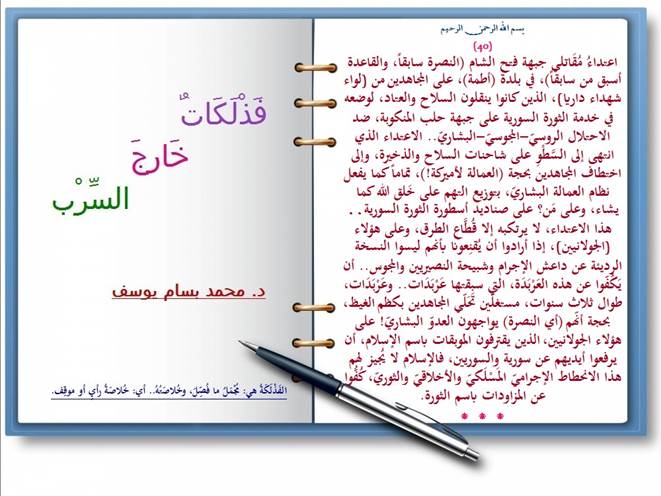 بسم الله الرحمن الرحيم
(40)
اعتداءُ مُقاتلي جبهة فتح الشام (النصرة سابقاً، والقاعدة
أسبق من سابقاً)، في بلدة (أطمة)، على المجاهدين من (لواء
شهداء داريا)، الذين كانوا ينقلون السلاح والعتاد، لوضعه
في خدمة الثورة السورية على جبهة حلب المنكوبة، ضد
الاحتلال الروسيّ-المجوسيّ-البشاريّ.. الاعتداء الذي
انتهى إلى السَّطْوِ على شاحنات السلاح والذخيرة، وإلى
اختطاف المجاهدين بحجة (العمالة لأميركة!)، تماماً كما يفعل
نظام العمالة البشاريّ، بتوزيع التهم على خَلق الله كما
يشاء، وعلى مَن؟ على صناديد أسطورة الثورة السورية..
هذا الاعتداء، لا يرتكبه إلا قُطَّاع الطرق، وعلى هؤلاء
(الجولانيين)، إذا أرادوا أن يُقنِعونا بأنهم ليسوا النسخة
الرديئة عن داعش الإجرام وشبيحة النصيريين والمجوس.. أن
يَكُفّوا عن هذه العَرْبَدَة، التي سبقتها عَرْبَدَات.. وعَرْبَدَات،
طوال ثلاث سنوات، مستغلّين تَحَلّي المجاهدين بكظم الغيظ،
بحجة أنهم (أي النصرة) يواجهون العدوّ البشاريّ! على
هؤلاء الجولانيين، الذين يقترفون الموبقات باسم الإسلام، أن
يرفعوا أيديهم عن سورية والسوريين، فالإسلام لا يُجيز لهم
هذا الانحطاط الإجراميّ المَسْلَكيّ والأخلاقيّ والثوريّ، كُفُّوا
عن المزاودات باسم الثورة.
* * *
فَذْلَكَاتٌ
خَارِجَ
السِّرْب
د. محمد بسام يوسف
الفَذْلَكَةُ هي: مُجْمَلُ ما فُصِّلَ، وخُلاصَتُهُ.. أي: خُلاصَةُ رأيٍ أو موقِف.